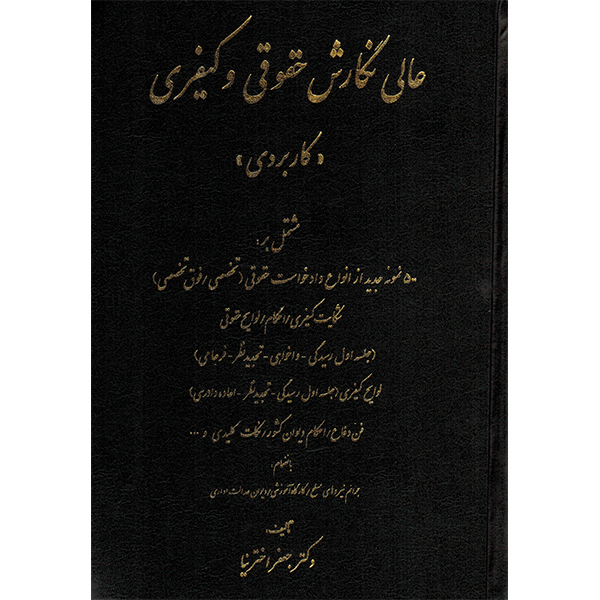 عالی نگارش حقوقی و کیفری
«کاربردی»
مشتمل بر:
۵۰۰ نمونه جدید از انواع دادخواست حقوقی (تخصصی/فوق تخصصی)
شکایت کیفری/احکام/لوایح حقوقی
(جلسه اول رسیدگی - واخواهی - تجدیدنظر - فرجامی)
لوایح کیفری (جلسه اول رسیدگی - تجدیدنظر - اعاده دادرسی)
فن دفاع/احکام دیوان کشور/نکات کلیدی و ...
بانضمام:
جرائم نیروهای مسلح/کارگاه آموزشی/دیوان عدالت اداری
تالیف:
دکتر جعفر اختر نیا